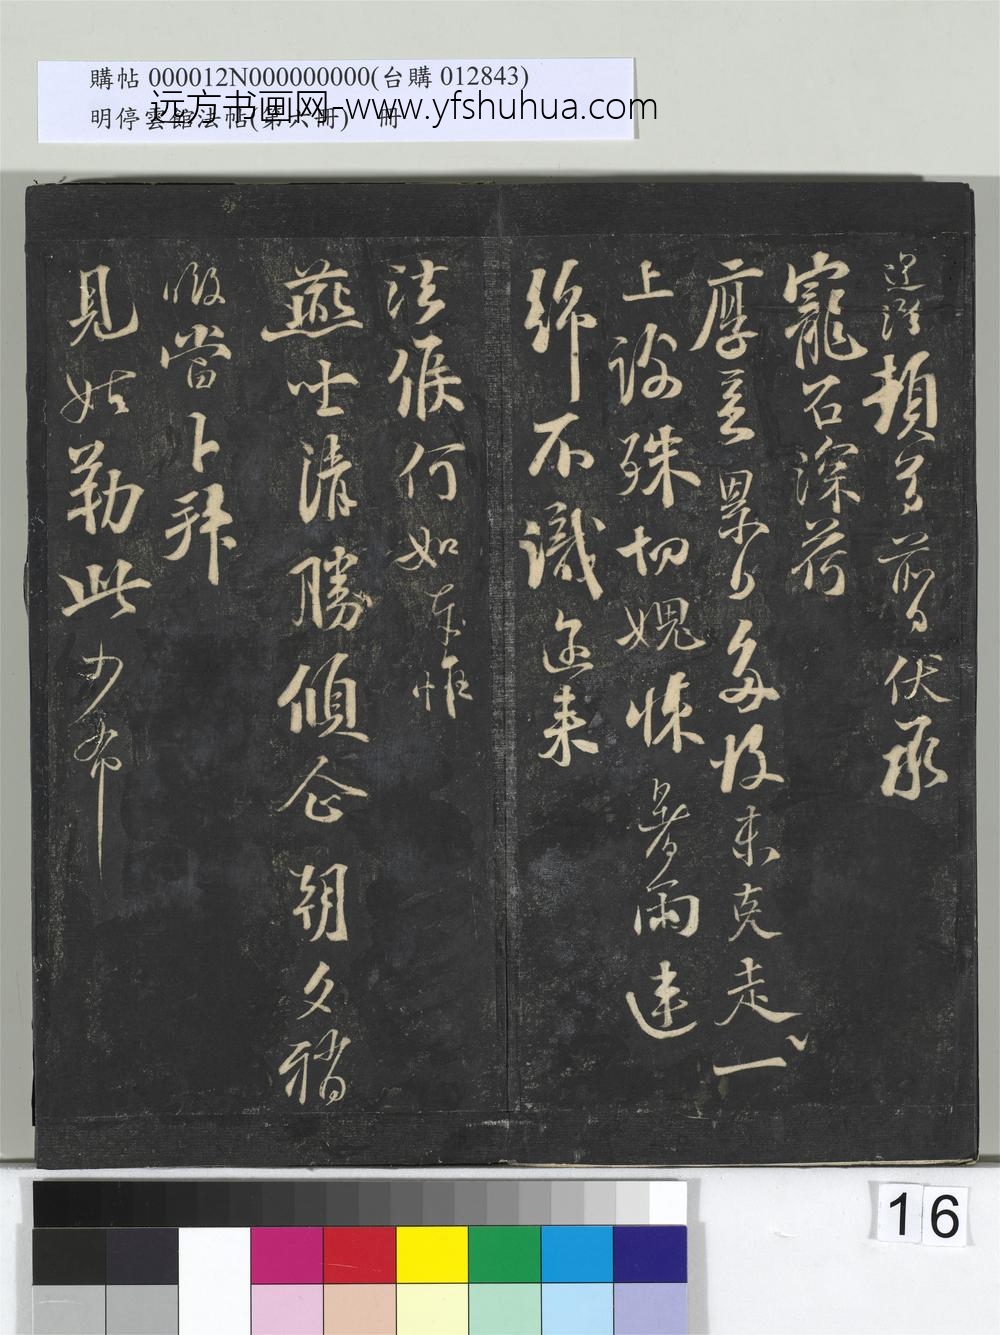 購帖 000012N000000000(台購 012843)
明停雲館法帖(第六冊) 冊
远方书画网-www.yfshuhua.com
頓首前日伏承
寵石深荷
厚意累日多故未克走一
上謝殊切媿悚暑雨連
綿不識邇來
法候何如奉惟
燕坐清勝傾企朝夕稍
暇當卜拜
見姑勒此少布
16